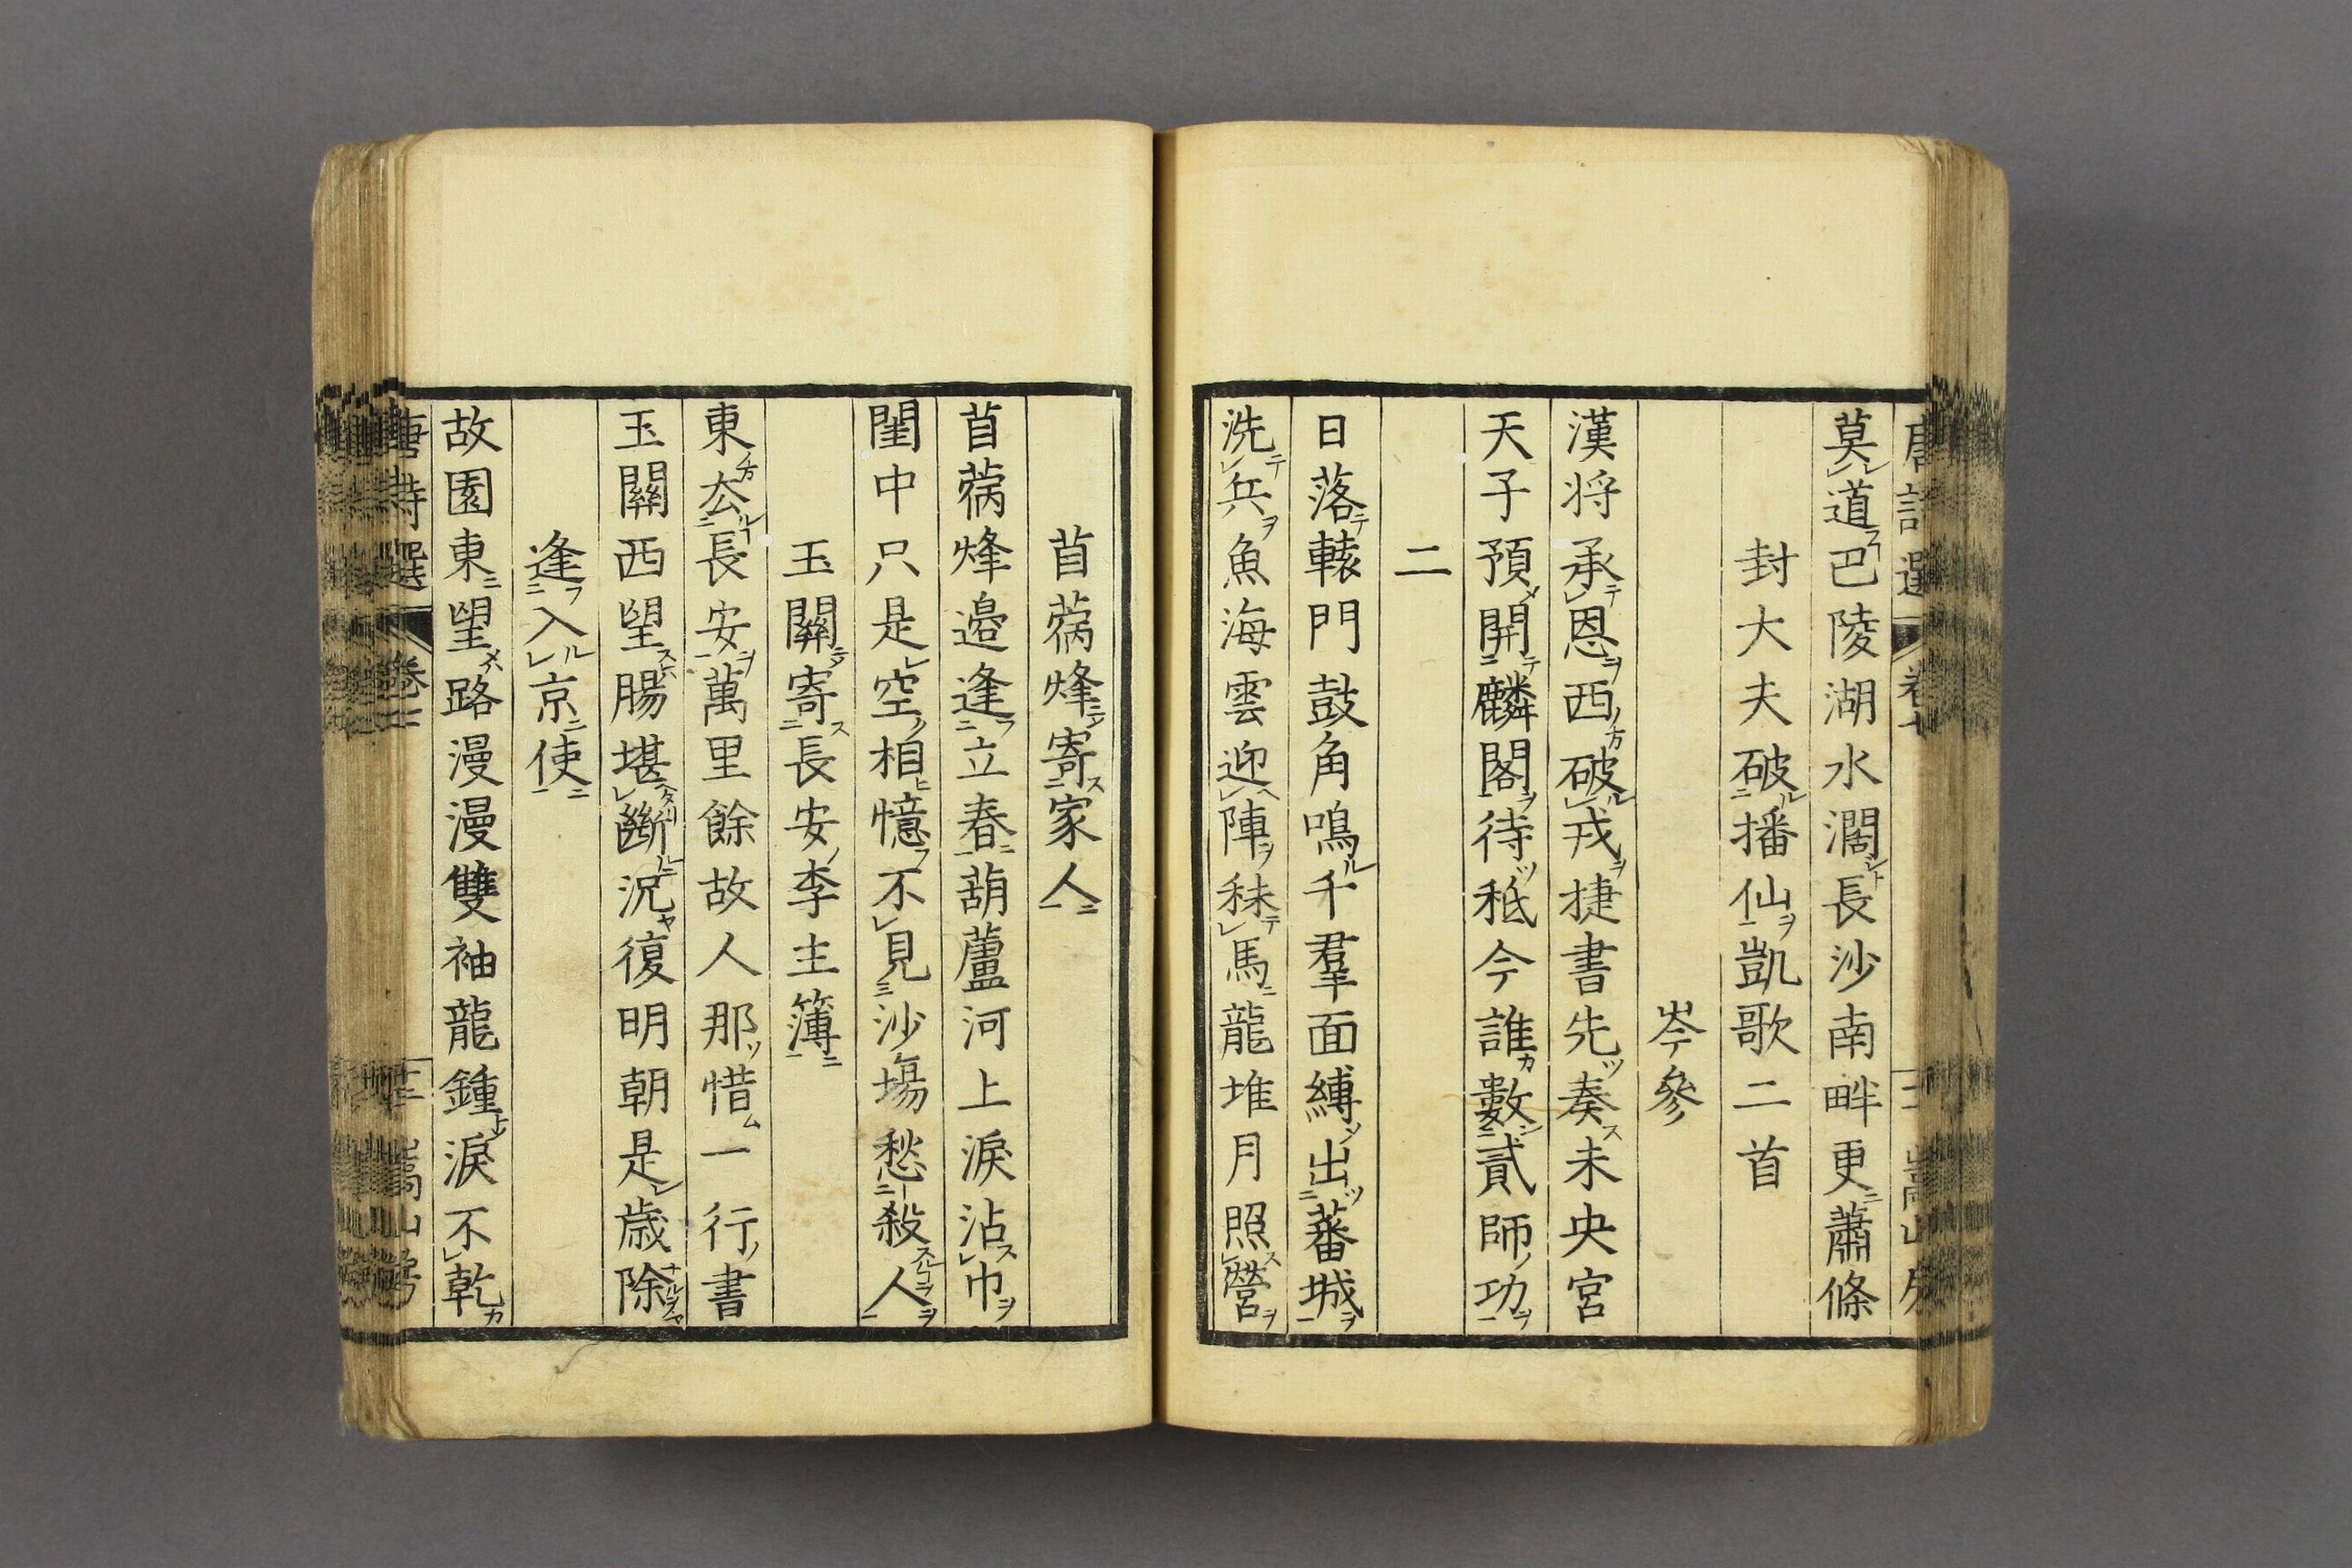 莫道巴陵湖水濶長沙南畔更蕭條
封大夫破播仙凱歌二首
岑參
漢将承恩西破戎捷書先奏未央宮
天子預開麟閣待秪今誰數貳師功
二
日落轅門鼓角鳴千羣面縛出蕃城
洗兵魚海雲迎陣秣馬龍堆月照營
苜蓿烽寄家人
苜蓿烽邉逢立春葫蘆河上淚沾巾
閨中只是空相憶不見沙塲愁殺人
玉關寄長安李主簿
東厺長安萬里餘故人那惜一行書
玉關西望腸堪斷況復明朝是歳除
逢入京使
故園東望路漫漫雙袖龍鍾淚不乾
唐詩選 卷七